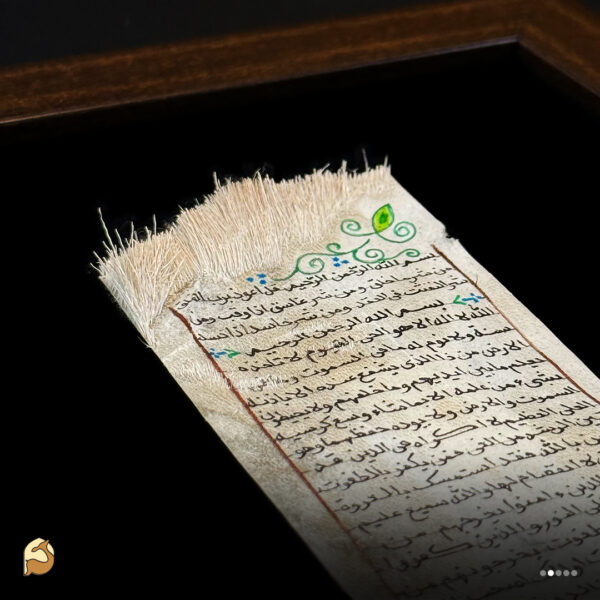 بسم الله الرحمن الرحيم قل اعوذ برب الفلق
من شر ما خلق ومن شر غاسق اذا وقب ومن
شر النفثت في العقد ومن شر حاسد اذا حسد
بسم الله الرحمن الرحيم
الله لا اله الا هو الحي القيوم لا تاخذه
سنة ولا نوم له ما في السموت وما في
الارض من ذا الذي يشفع عنده الا باذنه
يعلم ما بين ايديهم وما خلفهم ولا يحيطون
بشي من علمه الا بما شاء وسع كرسيه
السموت والارض ولا يوده حفظهما وهو
العلي العظيم لا اكراه في الدين قد
الرشد من الغي فمن يكفر بالطغوت
بالله فقد استمسك بالعروة
لا انفصام لها والله سميع عليم
الذين ءامنوا يخرجهم من
الى النور والذين كفروا
الطغوت يخرجونهم من